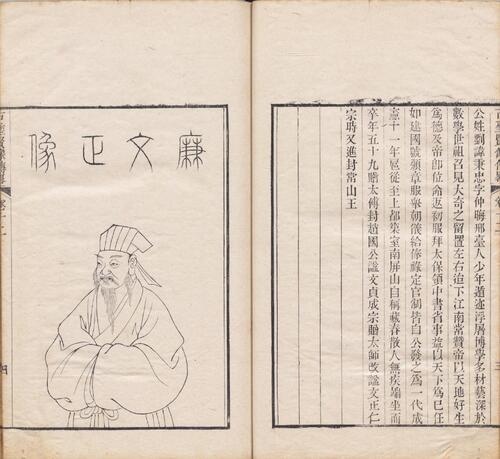 公姓劉諱秉忠字仲晦邢臺人少年遁迹浮屠博學多材藝深於
數學世祖召見大奇之留置左右迨下江南常贊帝以天地好生
爲德及帝卽位命返初服拜太保領中書省事益以天下爲己任
如建國號頒章服舉朝儀給俸祿定官制皆自公發之爲一代成
憲十一年扈從至上都築室南屏山自稱藏春散人無疾端坐而
卒年五十九贈太傅封趙國公諡文貞成宗贈太師改諡文正仁
宗時又進封常山王
三
廉文正像
四